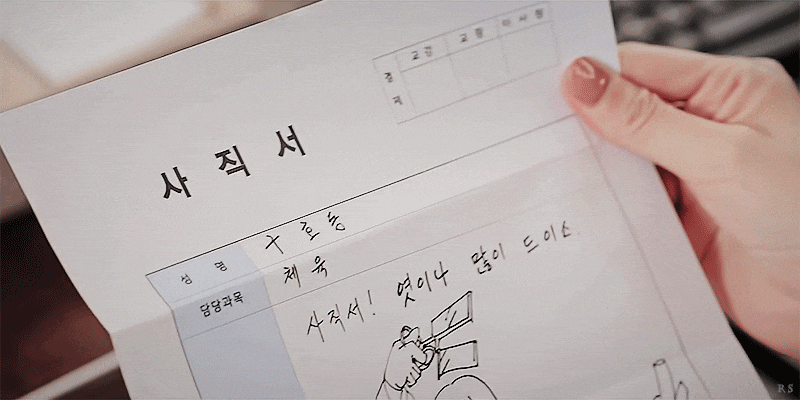 교감 교장 이사장
결
재
사 직 서
성 명 구호동
담당과목 체육
사직서! 엿이나 많이 드이소
RS